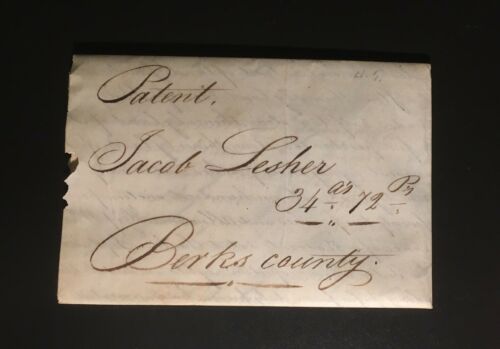 Patent.
Jacob Lesher
34 as 72 Ps
Berks county.